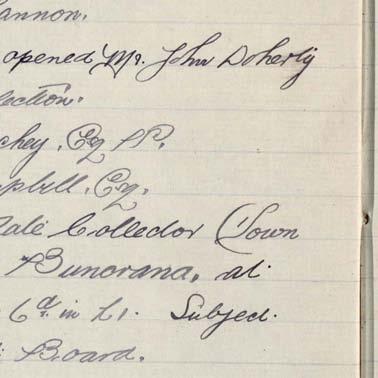 annon.
opened Mr. John Doherty
lection.
chey, Esq J.P.
pbell, Esq.
Rate Collector (Town
Buncrana, at
6d. in £1. Subject
Board.